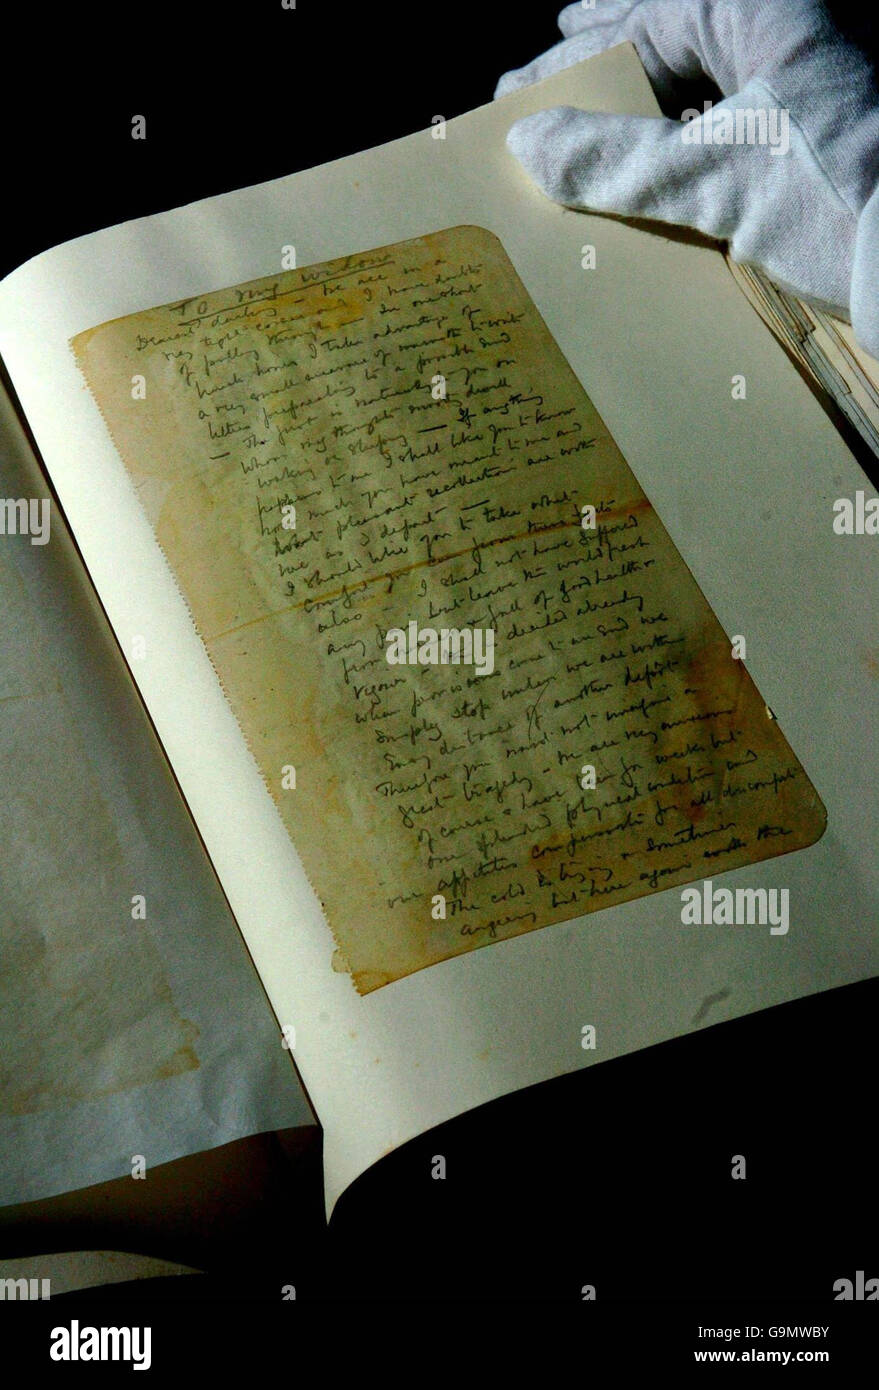 To My Widow
Dearest darling - We are in a
very tight corner and I have doubts
of pulling through - In our short
lunch hours I take advantage of
a very small measure of warmth to write
letters preparatory to a possible end
- The first is naturally to you on
whom my thoughts mostly dwell
waking or sleeping - If anything
happens to me I shall like you to know
how much you have meant to me and
that pleasant recollections are with
me as I depart -
I should like you to take what
comfort you can from these facts
also - I shall not have suffered
any pain but leave the world fresh
from harness & full of good health &
vigour - decided already
when provisions come to an end we
simply stop unless we are within
easy distance of another depot.
Therefore you must not imagine a
great tragedy - We are very anxious
of course & have been for weeks but
our splendid physical condition and
our appetites compensate for all discomfort
The cold is biting & sometimes
angering but here again the
alamy
alamy
alamy
Image ID: G9MWBY
www.alamy.com